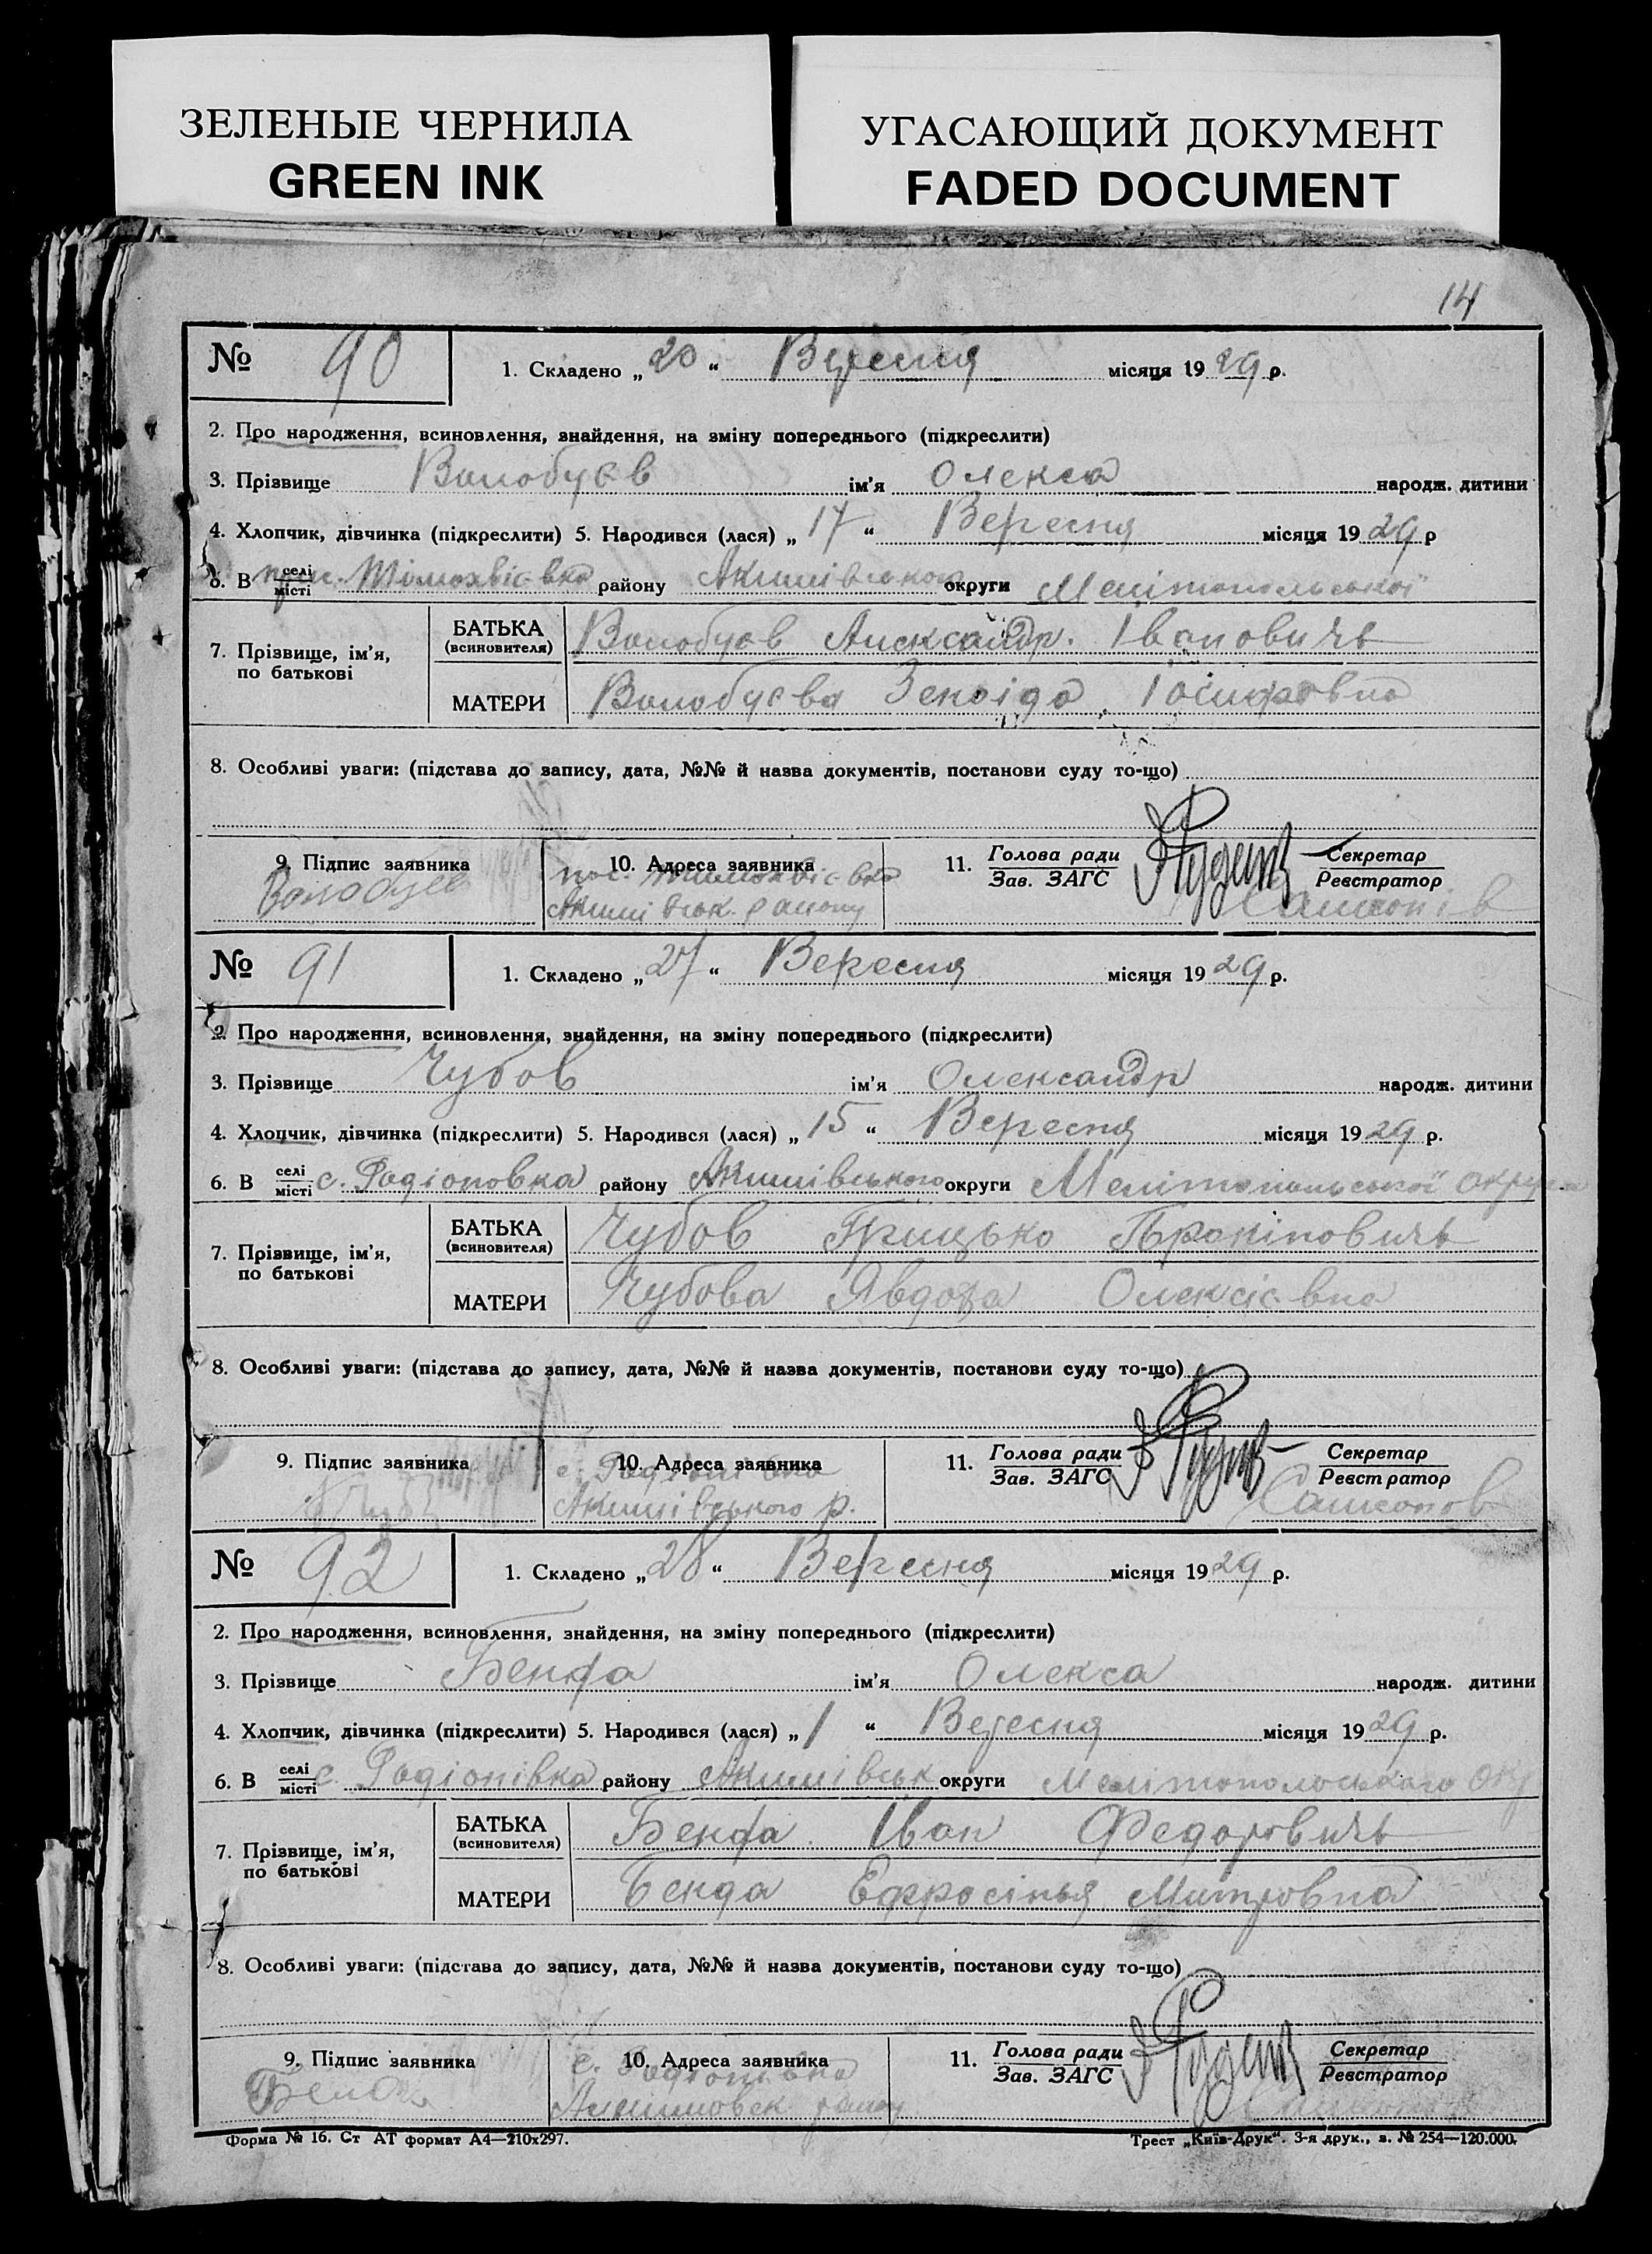 ЗЕЛЕНЫЕ ЧЕРНИЛА
GREEN INK
УГАСАЮЩИЙ ДОКУМЕНТ
FADED DOCUMENT
14
№ 90 1. Складено „20“ Вересня місяця 1929 р.
2. Про народження, всиновлення, знайдення, на зміну попереднього (підкреслити)
3. Прізвище Волобуєв ім'я Олекса народж. дитини
4. Хлопчик, дівчинка (підкреслити) 5. Народився (лася) „17“ Вересня місяця 1929 р
6. В селі місті Тімохвієвка району Акимівського округи Мелітопольської
7. Прізвище, ім'я, по батькові
БАТЬКА (всиновителя) Волобуєв Александр. Івановичь
МАТЕРИ Волобуєва Зеноіда Іосифовна
8. Особливі уваги: (підстава до запису, дата, №№ й назва документів, постанови суду то-що)
9. Підпис заявника Волобуев
10. Адреса заявника пос. Тимохвієвка Акимівськ. району
11. Голова ради Зав. ЗАГС
Секретар Реєстратор Самсонів
№ 91 1. Складено „27“ Вересня місяця 1929 р.
2. Про народження, всиновлення, знайдення, на зміну попереднього (підкреслити)
3. Прізвище Чубов ім'я Олександр народж. дитини
4. Хлопчик, дівчинка (підкреслити) 5. Народився (лася) „15“ Вересня місяця 1929 р.
6. В селі місті с. Родіоновка району Акимівського округи Мелітопольської округи
7. Прізвище, ім'я, по батькові
БАТЬКА (всиновителя) Чубов Грицько Прокіповичь
МАТЕРИ Чубова Явдоха Олексієвна
8. Особливі уваги: (підстава до запису, дата, №№ й назва документів, постанови суду то-що)
9. Підпис заявника
10. Адреса заявника с. Родіонівка Акимівського р.
11. Голова ради Зав. ЗАГС
Секретар Реєстратор Самсонов
№ 92 1. Складено „28“ Вересня місяця 1929 р.
2. Про народження, всиновлення, знайдення, на зміну попереднього (підкреслити)
3. Прізвище Бенда ім'я Олекса народж. дитини
4. Хлопчик, дівчинка (підкреслити) 5. Народився (лася) „1“ Вересня місяця 1929 р.
6. В селі місті с. Родіонівка району Акимівськ округи Мелитопольського окр
7. Прізвище, ім'я, по батькові
БАТЬКА (всиновителя) Бенда Іван Федоровичь
МАТЕРИ Бенда Ефросінья Митровна
8. Особливі уваги: (підстава до запису, дата, №№ й назва документів, постанови суду то-що)
9. Підпис заявника Бенда
10. Адреса заявника с. Родіонівка Акимовск району
11. Голова ради Зав. ЗАГС
Секретар Реєстратор
Форма № 16. Ст АТ формат А4—210х297.
Трест „Київ-Друк“. 3-я друк., з. № 254—120.000.